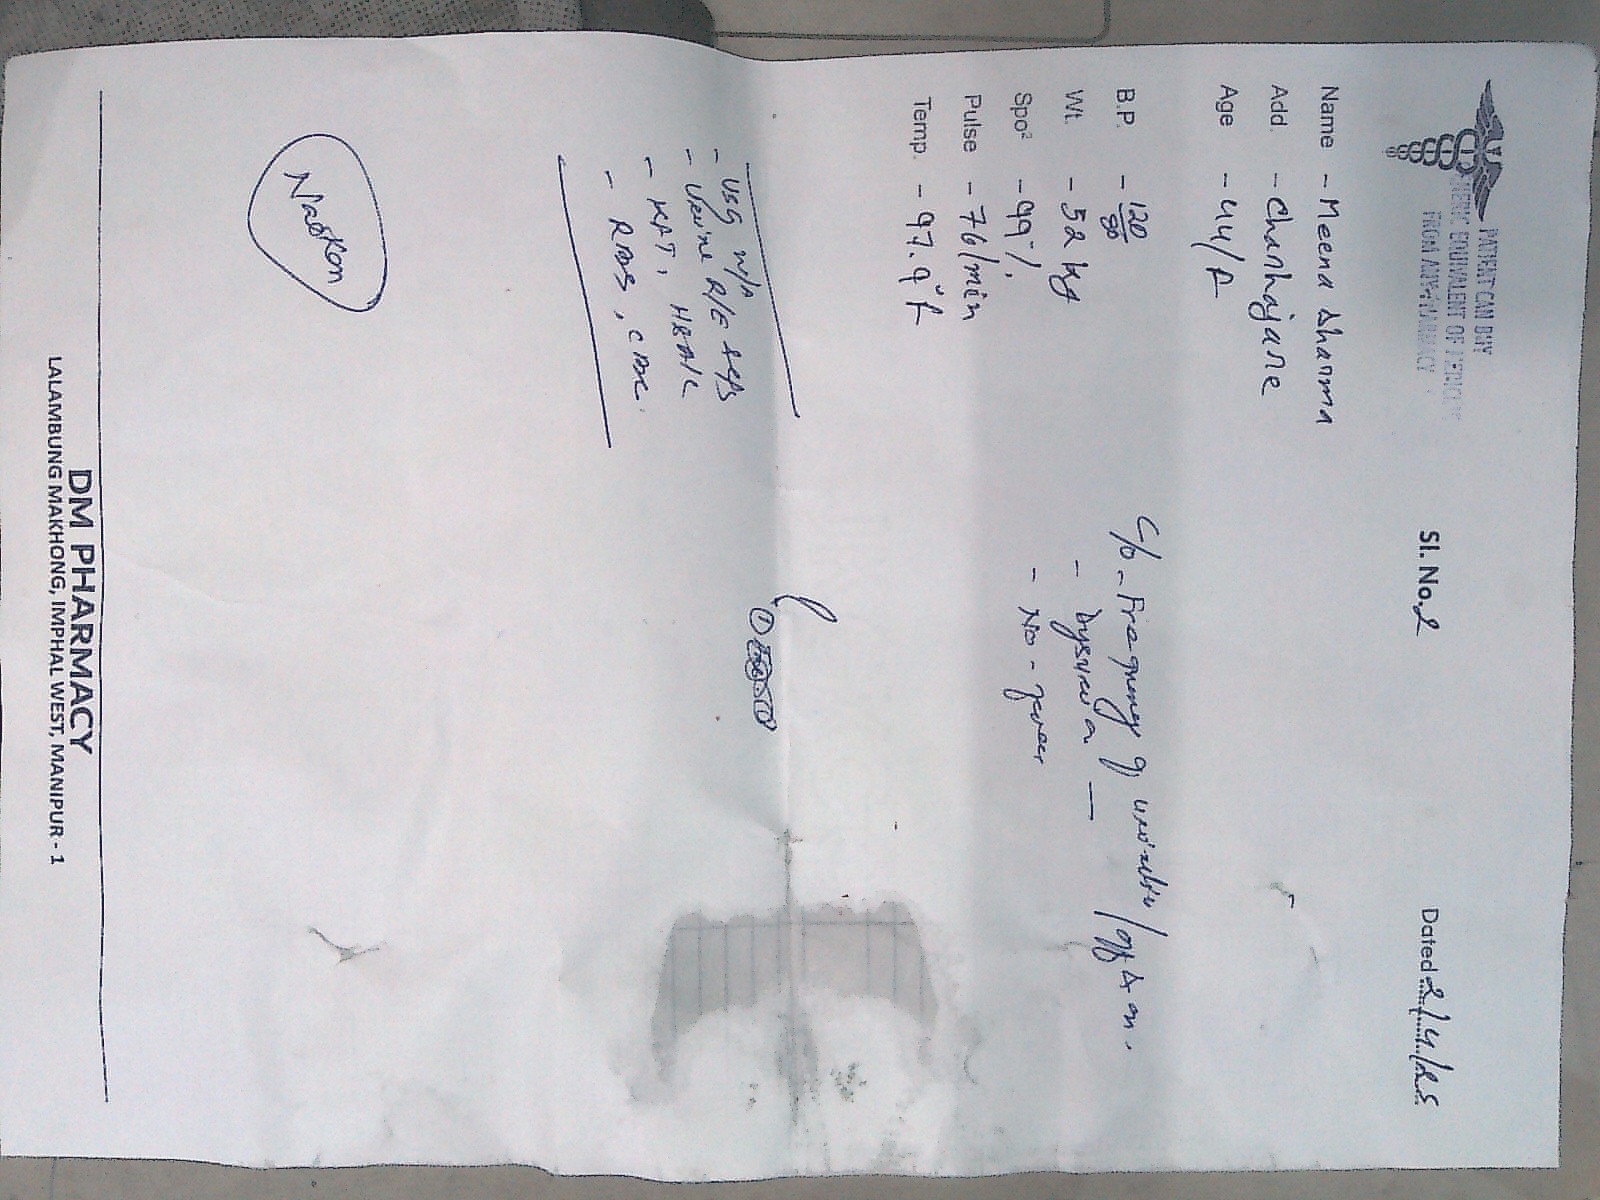 PATIENT CAN BUY
GENERIC EQUIVALENT OF MEDICINE
FROM ANY PHARMACY
Sl. No. 2
Dated 2/4/25
Name - Meena Sharma
Add. - Chanhajane
Age - 44/F
B.P. - 120/80
Wt. - 52 kg
Spo² - 99%.
Pulse - 76/min
Temp. - 97.9°f
C/o - Frequency of
- Dysuria
- No - fever
- USG W/A
- Urine R/E
- KFT, HBA1c
- RBS, CBC.
DM PHARMACY
LALAMBUNG MAKHONG, IMPHAL WEST, MANIPUR - 1